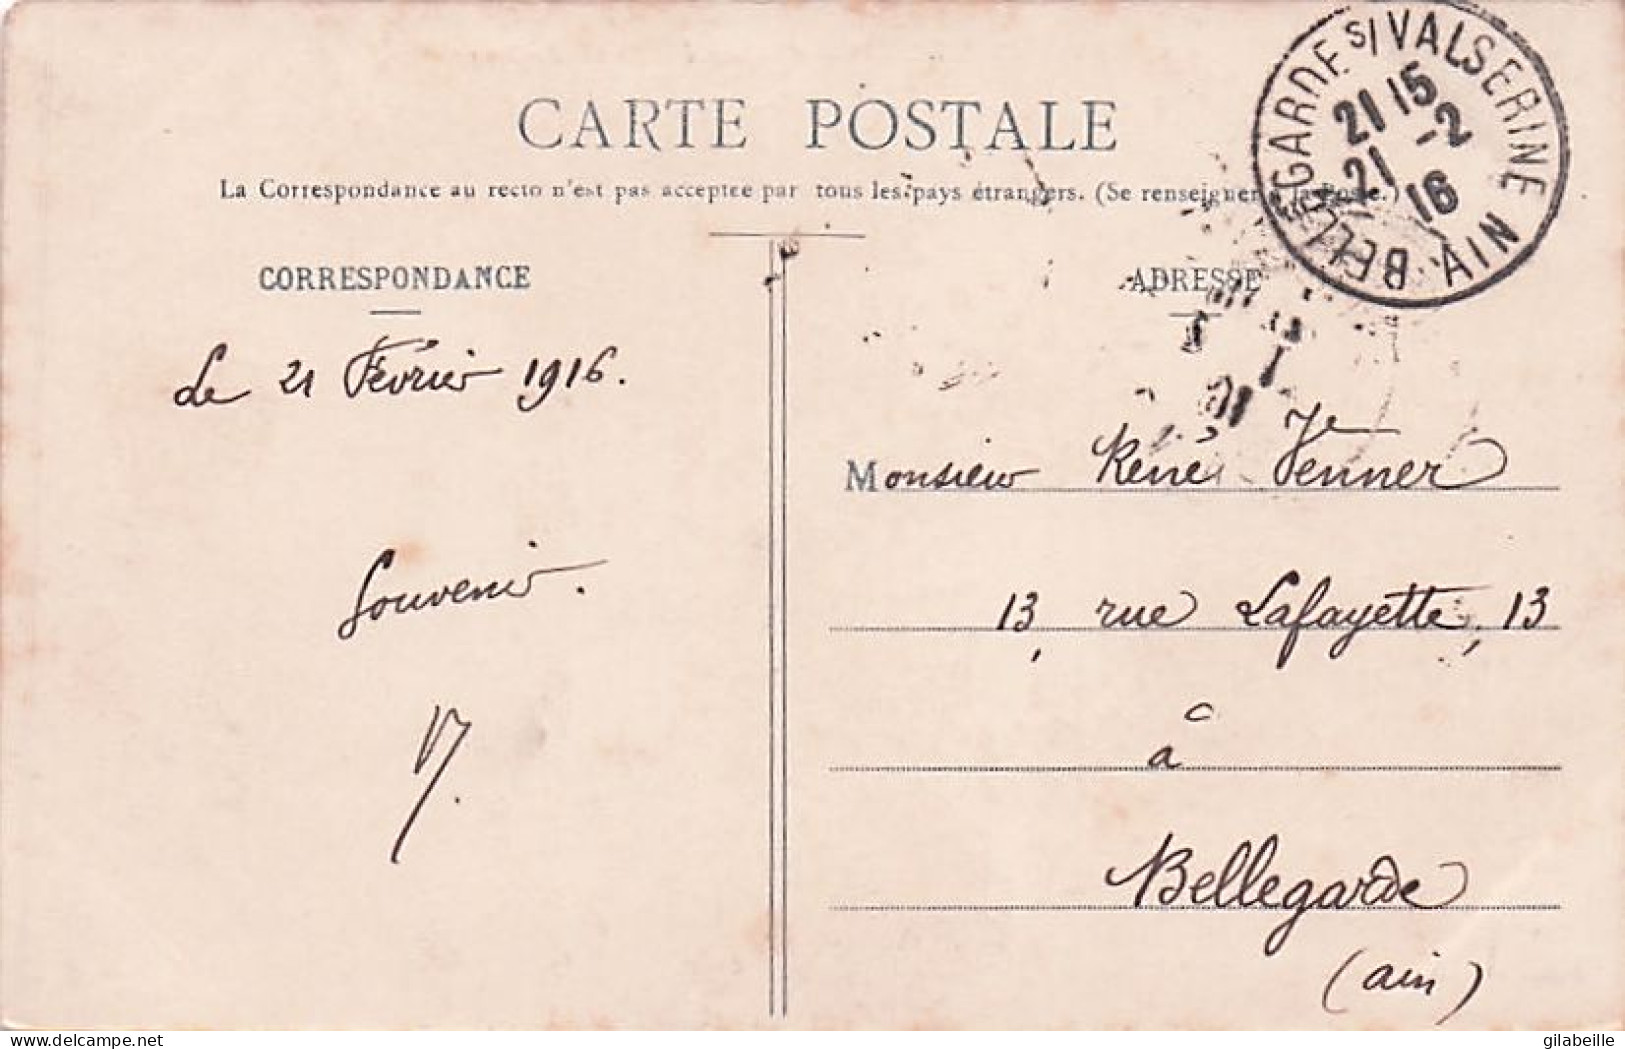 CARTE POSTALE
La Correspondance au recto n'est pas acceptée par tous les pays étrangers. (Se renseigner à la Poste.)
BELLEGARDE S/VALSERINE
21 15
21 -2
16
AIN
CORRESPONDANCE
Le 21 Février 1916.
Souvenir.
ADRESSE
Monsieur René Venner
13, rue Lafayette, 13
à
Bellegarde
(ain)
delcampe.net
gilabeille